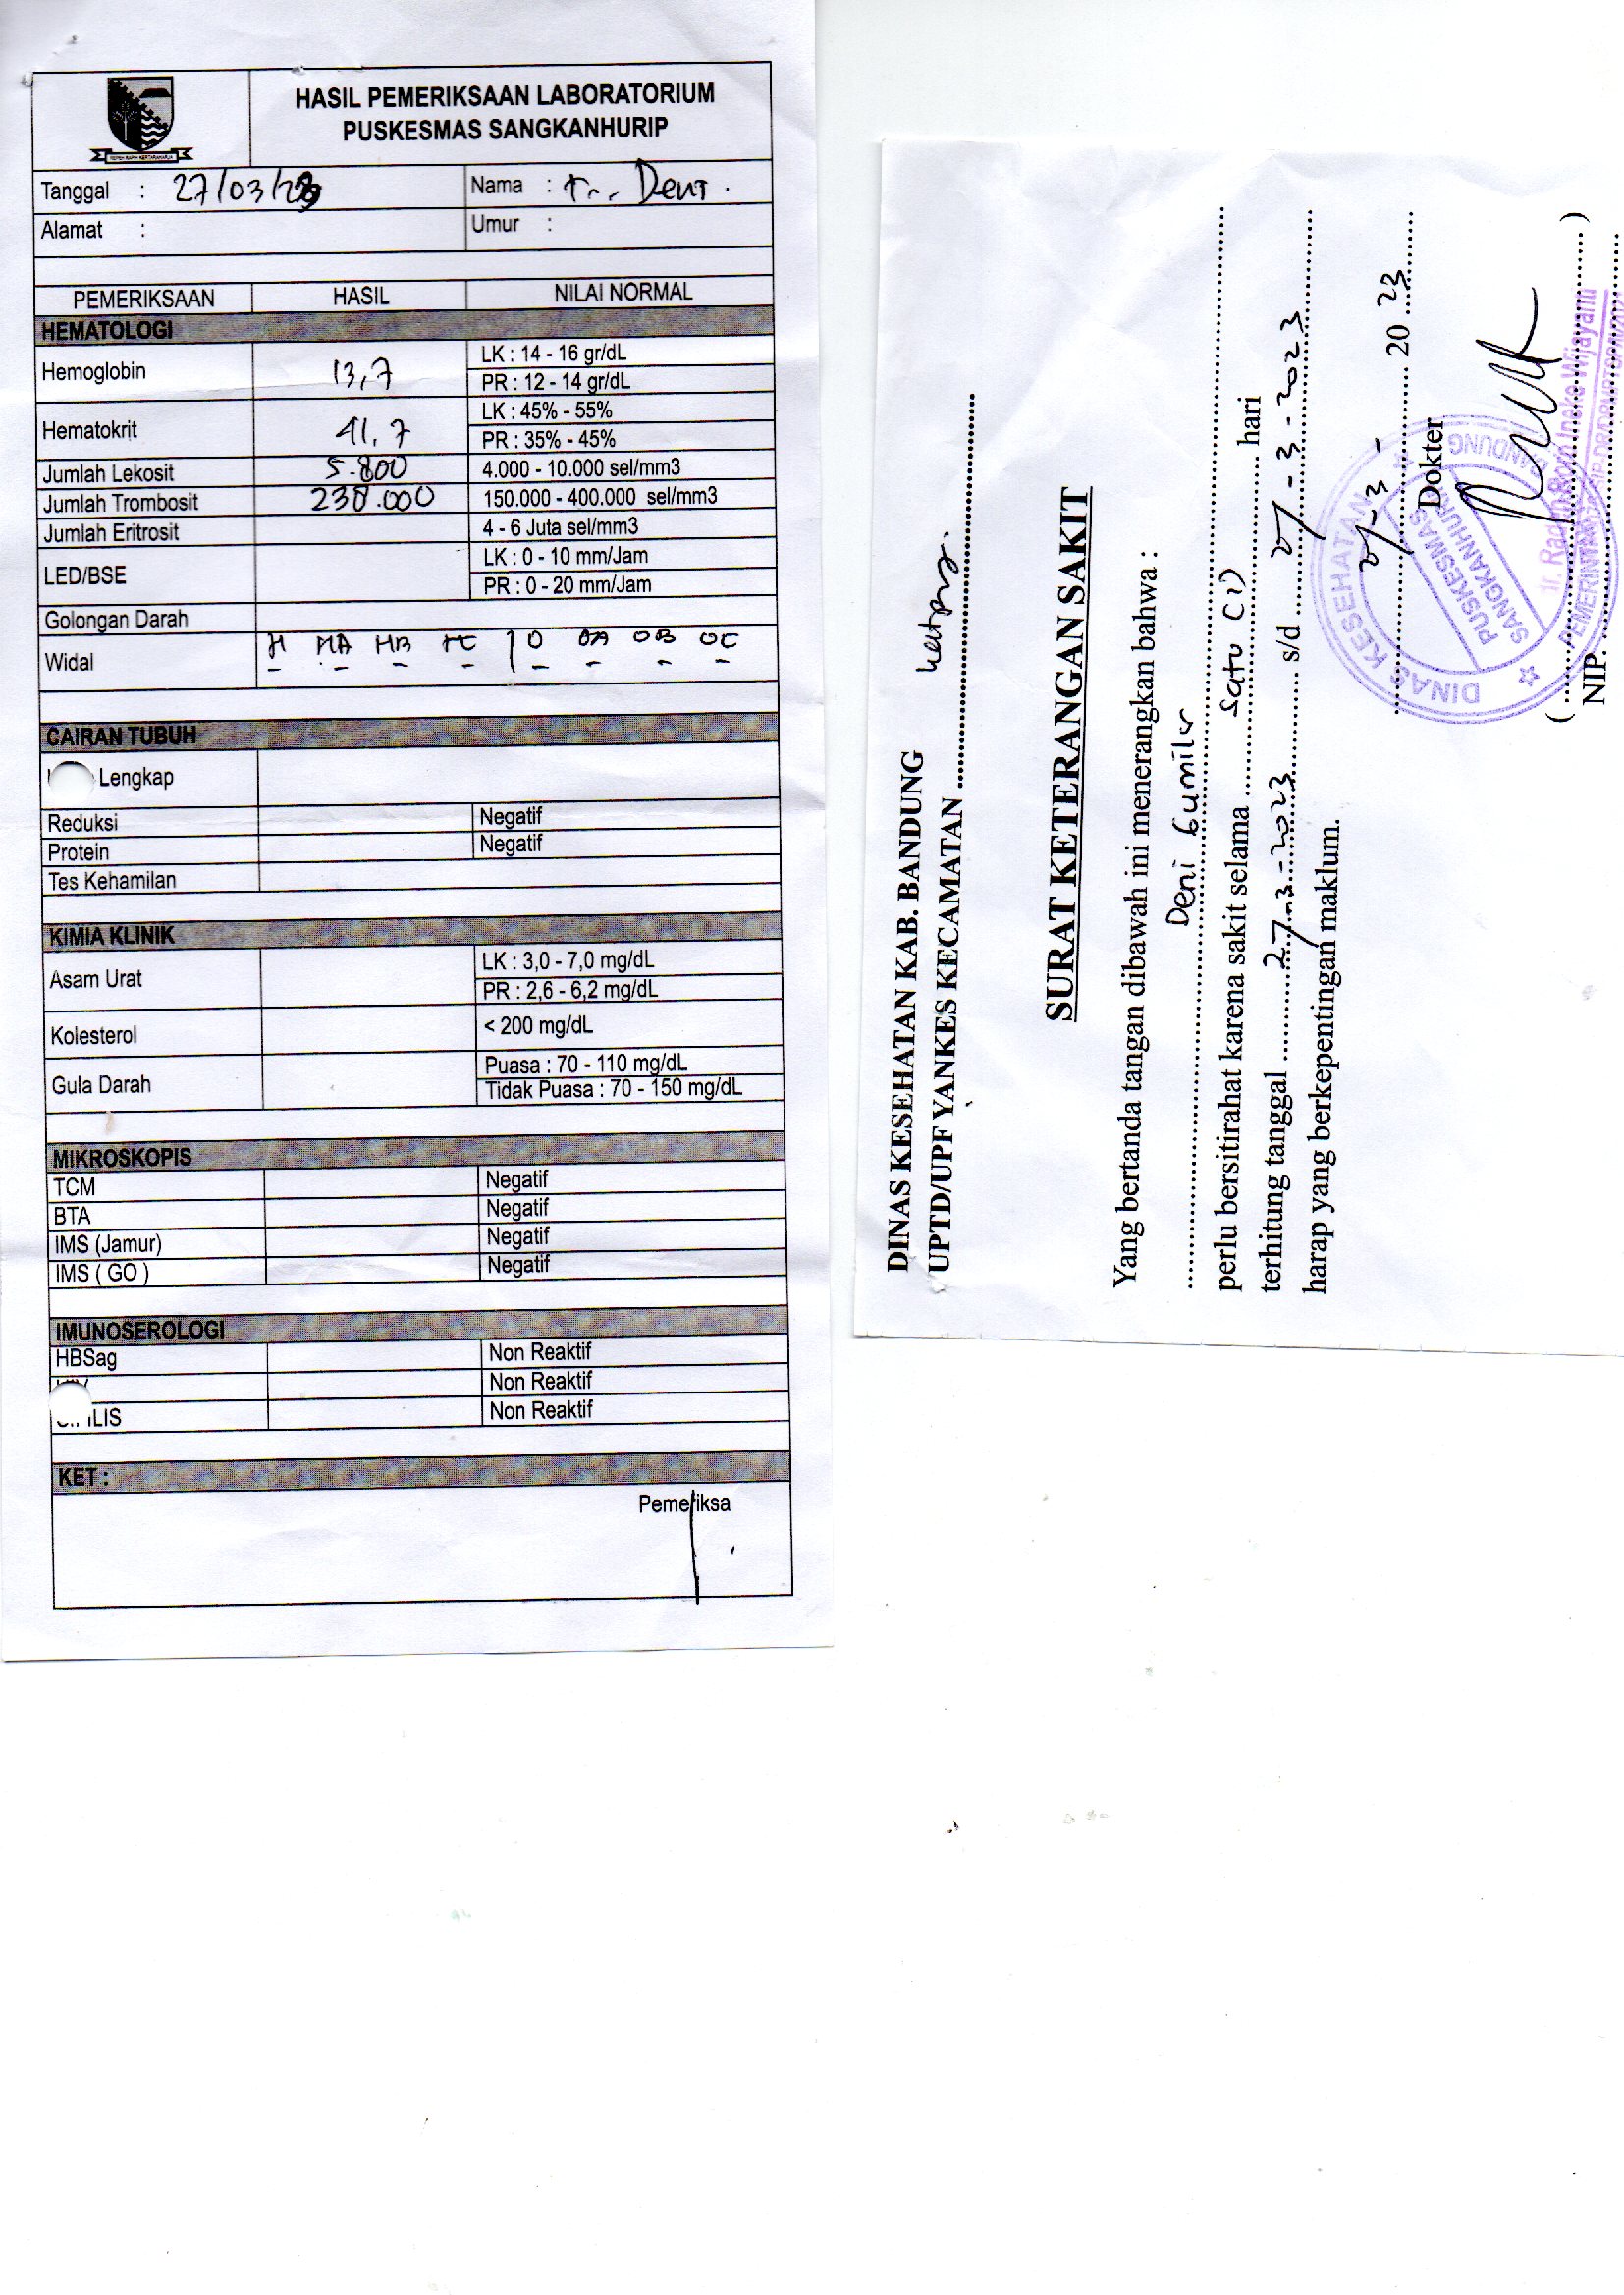 HASIL PEMERIKSAAN LABORATORIUM
PUSKESMAS SANGKANHURIP
Tanggal : 27/03/23 Nama : Tn. Deni.
Alamat : Umur :
PEMERIKSAAN HASIL NILAI NORMAL
HEMATOLOGI
Hemoglobin 13,7 LK : 14 - 16 gr/dL
PR : 12 - 14 gr/dL
Hematokrit 41,7 LK : 45% - 55%
PR : 35% - 45%
Jumlah Lekosit 5.800 4.000 - 10.000 sel/mm3
Jumlah Trombosit 238.000 150.000 - 400.000 sel/mm3
Jumlah Eritrosit 4 - 6 Juta sel/mm3
LED/BSE LK : 0 - 10 mm/Jam
PR : 0 - 20 mm/Jam
Golongan Darah
Widal H HA HB HC | O OA OB OC
- - - - - - - -
CAIRAN TUBUH
Lengkap
Reduksi Negatif
Protein Negatif
Tes Kehamilan
KIMIA KLINIK
Asam Urat LK : 3,0 - 7,0 mg/dL
PR : 2,6 - 6,2 mg/dL
Kolesterol < 200 mg/dL
Gula Darah Puasa : 70 - 110 mg/dL
Tidak Puasa : 70 - 150 mg/dL
MIKROSKOPIS
TCM Negatif
BTA Negatif
IMS (Jamur) Negatif
IMS ( GO ) Negatif
IMUNOSEROLOGI
HBSag Non Reaktif
Non Reaktif
Non Reaktif
KET :
Pemeriksa
DINAS KESEHATAN KAB. BANDUNG
UPTD/UPF YANKES KECAMATAN
SURAT KETERANGAN SAKIT
Yang bertanda tangan dibawah ini menerangkan bahwa :
Deni Gumilr
perlu bersitirahat karena sakit selama satu (1) hari
terhitung tanggal 27-3-2023 s/d 27-3-2023
harap yang berkepentingan maklum.
27-3- 20 23
Dokter
DINAS KESEHATAN
PUSKESMAS
SANGKANHURIP
BANDUNG
( )
NIP.